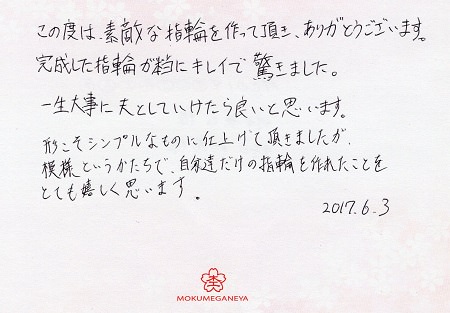 この度は、素敵な指輪を作って頂き、ありがとうございます。
完成した指輪が本当にキレイで驚きました。
一生大事に夫としていけたら良いと思います。
形こそシンプルなものに仕上げて頂きましたが、
模様というかたちで、自分達だけの指輪を作れたことを
とても嬉しく思います。
2017.6.3
MOKUMEGANEYA